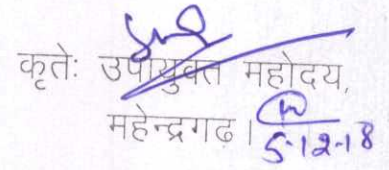 कृतेः उपायुक्त महोदय,
महेन्द्रगढ़।
5-12-18